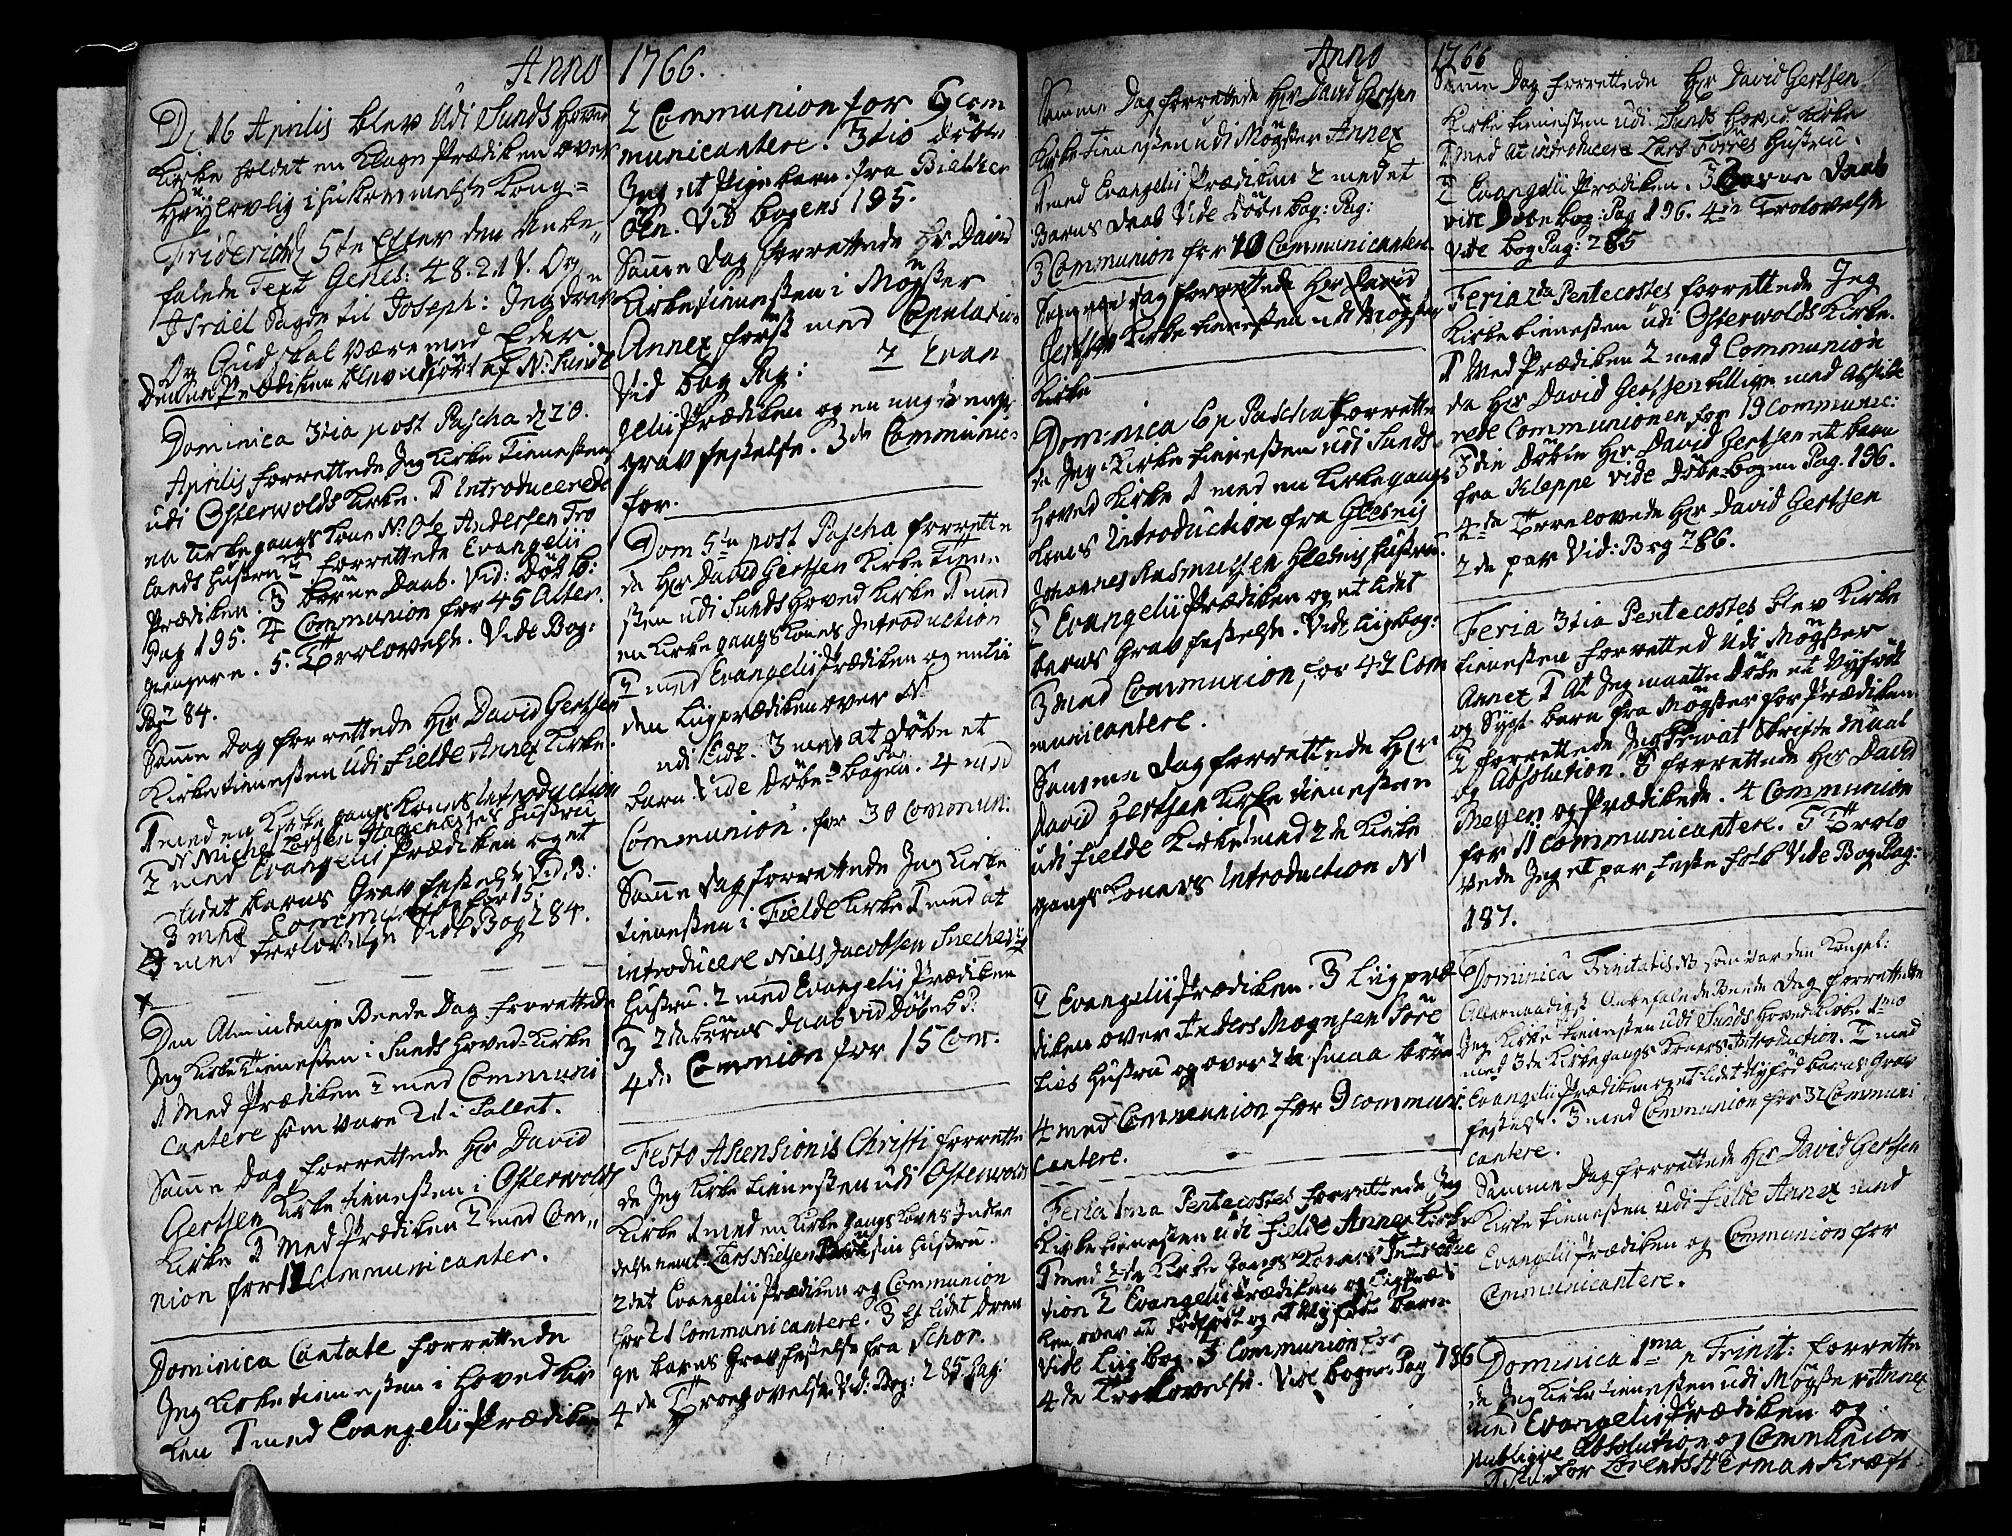 Anno 1766.
D. 16 Aprilis blev Udi Sunds Hoved
Kirke holdet en Klage Prædiken over
Höylovlig ihukommelse Kong=
Friderich 5te Efter den Anbe„
falede Text Genes: 48. 21 V. Og
Israel sagde til Joseph: Jeg döer
Og Gud skal være med Eder
Denne Prædiken blev udfört af N: Sundt
Dominica 3tia post Pascha d 20.
Aprilis forrettede Jeg Kirke Tienesten
udi Osterwolds Kirke. 1 Introducerede
en Kirkegangs Kone N: Ole Andersen
lands Hustru 2 forrettede Evangelii
Prædiken. 3 börne Daab. Vid: Döb B:
Pag 195. 4 Communion for 45 Alter.
giengere. 5. Trolovelse. Vide Bog:
Pag 84.
Samme Dag forrettede Hr David Gertsen
Kirketienesten Udi Fielde Annex Kirke.
1 med en Kirke gangs Kones Introduction
N Michel Larsen Hustru
2 med Evangelii Prædiken og et
lidet barns Grav festelse Vid B:
3 med Communion for 15.
4 med Trolovelse Vide Bog 284.
Den Almindelige Beede Dag forrettede
Jeg Kirke Tienesten i Sunds Hoved-Kirke
1 Med Prædiken 2 med Communi
cantere som vare 21 i Tallet.
Samme Dag forrettede Hr David
Gertsen Kirke tienesten i Osterwolds
Kirke 1 Med Prædiken 2 med Com„
nion for 12 Communicanter.
Dominica Cantate forrettede
Jeg Kirke tienesten i Hoved Kir
ken 1 med Evangelii Prædiken
2 Communion for 9 Com
municantere. 3tio döbte
Jeg et Pige barn fra Bielker
öen. Vid bogens 195.
Samme dag forrettede Hr David
Kirketienesten i Mögster
Annex först med Copulation
Vid bog Pag: 2 Evan
gelii Prædiken og en
grav festelse. 3de Communion
for.
Dom 5te post Pascha forrette
de Hr David Gertsen Kirke Tiene
sten udi Sunds Hoved Kirke 1 med
en Kirke gangs Kones Introduction
2 med Evangelii Prædiken og en
den Liigprædiken over N
udi 3 med at döbe et
barn Vide Döbe-bogen. 4 med
Communion. for 30 Commun:
Samme dag forrettede Jeg Kirke
tienesten i Fielde Kirke 1 med at
introducere Niels Jacobsen
Hustru. 2 med Evangelii Prædiken
3 2de börns daab vid Döbe B:
4de Commnion for 15 Com.
Festo Ascensionis Christi forrette
de Jeg Kirke tienesten udi Osterwolds
Kirke 1 med en Kirke gangs Kones
Lars Nielsen sin Hustru.
2 det Evangelii Prædiken og Communion
for 21 Communicantere. 3 Et lidet Dren
ge barns Gravfestelse fra Schor.
4de Trolovelse Vid: Bog: 285 Pag:
Anno 1766
Samme Dag forrettede Hr David Gertsen
Kirke Tienesten udi Mögster Annex
1 med Evangelii Prædiken 2 med et
Barns daab Vide Döbe bog: Pag:
3 Communion for 10 Communicanter.
Samme dag forrettede Hr David
Gertsen Kirke tienesten udi Mögster
Kirke
Dominica 6 p Pascha forrette
de Jeg Kirke tienesten udi Sunds
Hoved Kirke 1 med en Kirkegangs
Kones Introduction fra Glesnis
Johannes Rasmussen Glesnis Hustru.
2 Evangelii Prædiken og et lidet
barns Grav festelse. Vide Liigbog:
3 Med Communion for 42 Com
municantere.
Samme Dag forrettede Hr
David Gertsen Kirke tienesten
udi Fielde Kirke 1 med 2de Kirke
gangs Koners Introduction N
2 Evangelii Prædiken. 3 Liigpræ
diken over Anders Mognsen
Hustru og over 2de smaa börn
4 med Communion for 9 Communi:
cantere.
Feria 1ma Pentecostes forrettede Jeg
Kirke tienesten udi Fielde Annex Kirke
1 med 2de Kirke Gangs Koners Introduc
tion 2 Evangelii Prædiken og Liigpræ
ken over et og et Nyföd Barn
Vide Liig bog. 3 Communion for
4de Trolovelse. Vide bogen Pag 286
Samme Dag forrettede Hr David Gertsen
Kirke tienesten udi Sunds Hoved Kirke
1 med at introducere Lars Torres Hustru.
2 Evangelii Prædiken. 3 Barne Daab
vide Döbe bog: Pag 196. 4de Trolovelse
Vide bog Pag: 285
Feria 2da Pentecostes forrettede Jeg
Kirke tienesten udi Osterwolds Kirke.
1 Med Prædiken 2 med Communion
da Hr David Gertsen tillige med
rede Communionen for 19 Communic:
3die Döbte Hr David Gertsen et barn
fra Kleppe vide Döbe-bogen Pag. 196.
4de Trolovede Hr David Gertsen
2de par Vid: Bog 286.
Feria 3tia Pentecostes blev Kirke
tienesten forretted Udi Mögster
Annex 1 At Jeg maatte Döbe et Nyföd
og Sygt barn fra Mögster for Prædiken
2 forrettede Jeg Privat Skrifte maal
og Absolution. 3 forrettede Hr David
Messen og Prædikede. 4 Communion
for 11 Communicantere. 5 Trolo
vede Jeg et par Vide Bog Pag:
187.
Dominica Trinitatis som var den Kongel:
Allernaadigst Anbefalede Beede Dag forrettede
Jeg Kirke tienesten udi Sunds Hoved Kirke. 1mo
med 3de Kirkegangs Koners Introduction. 2 med
Evangelii Prædiken og et lidet Nyföd barns Grav
festelse. 3 med Communion for 32 Communi
cantere.
Samme Dag forrettede Hr David Gertsen
Kirke tienesten udi Fielde Annex med
Evangelii Prædiken og Communion for
Communicantere.
Dominica 1ma p Trinit: forrette
de Jeg Kirke tienesten udi Mögster Annex
med Evangelii Prædiken og
publiqve Absolution og Communion
for Lorents Herman Kræft